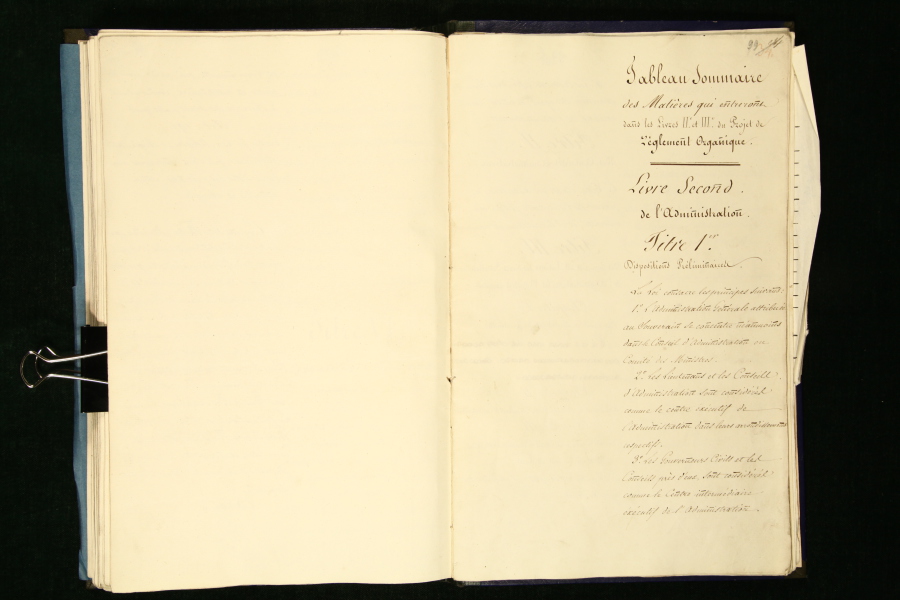 Tableau Sommaire
des Matières qui entreront
dans les Livres IIᵉ et IIIᵉ du Projet de
Règlement Organique.
Livre Second.
de l'Administration.
Titre 1ᵉʳ
Dispositions Préliminaires.
La Loi consacre les principes suivans:
1º L'Administration Générale attribuée
au Souverain se concentre
dans le Conseil d'Administration ou
Comité des Ministres.
2º Les Lieutenans et les Conseils
d'Administration sont considérés
comme le centre exécutif de
l'Administration dans leurs arrondissemens
respectifs.
3º Les Gouverneurs Civils et les
Conseils près d'eux sont considérés
comme le Centre intermédiaire
exécutif de l'Administration.